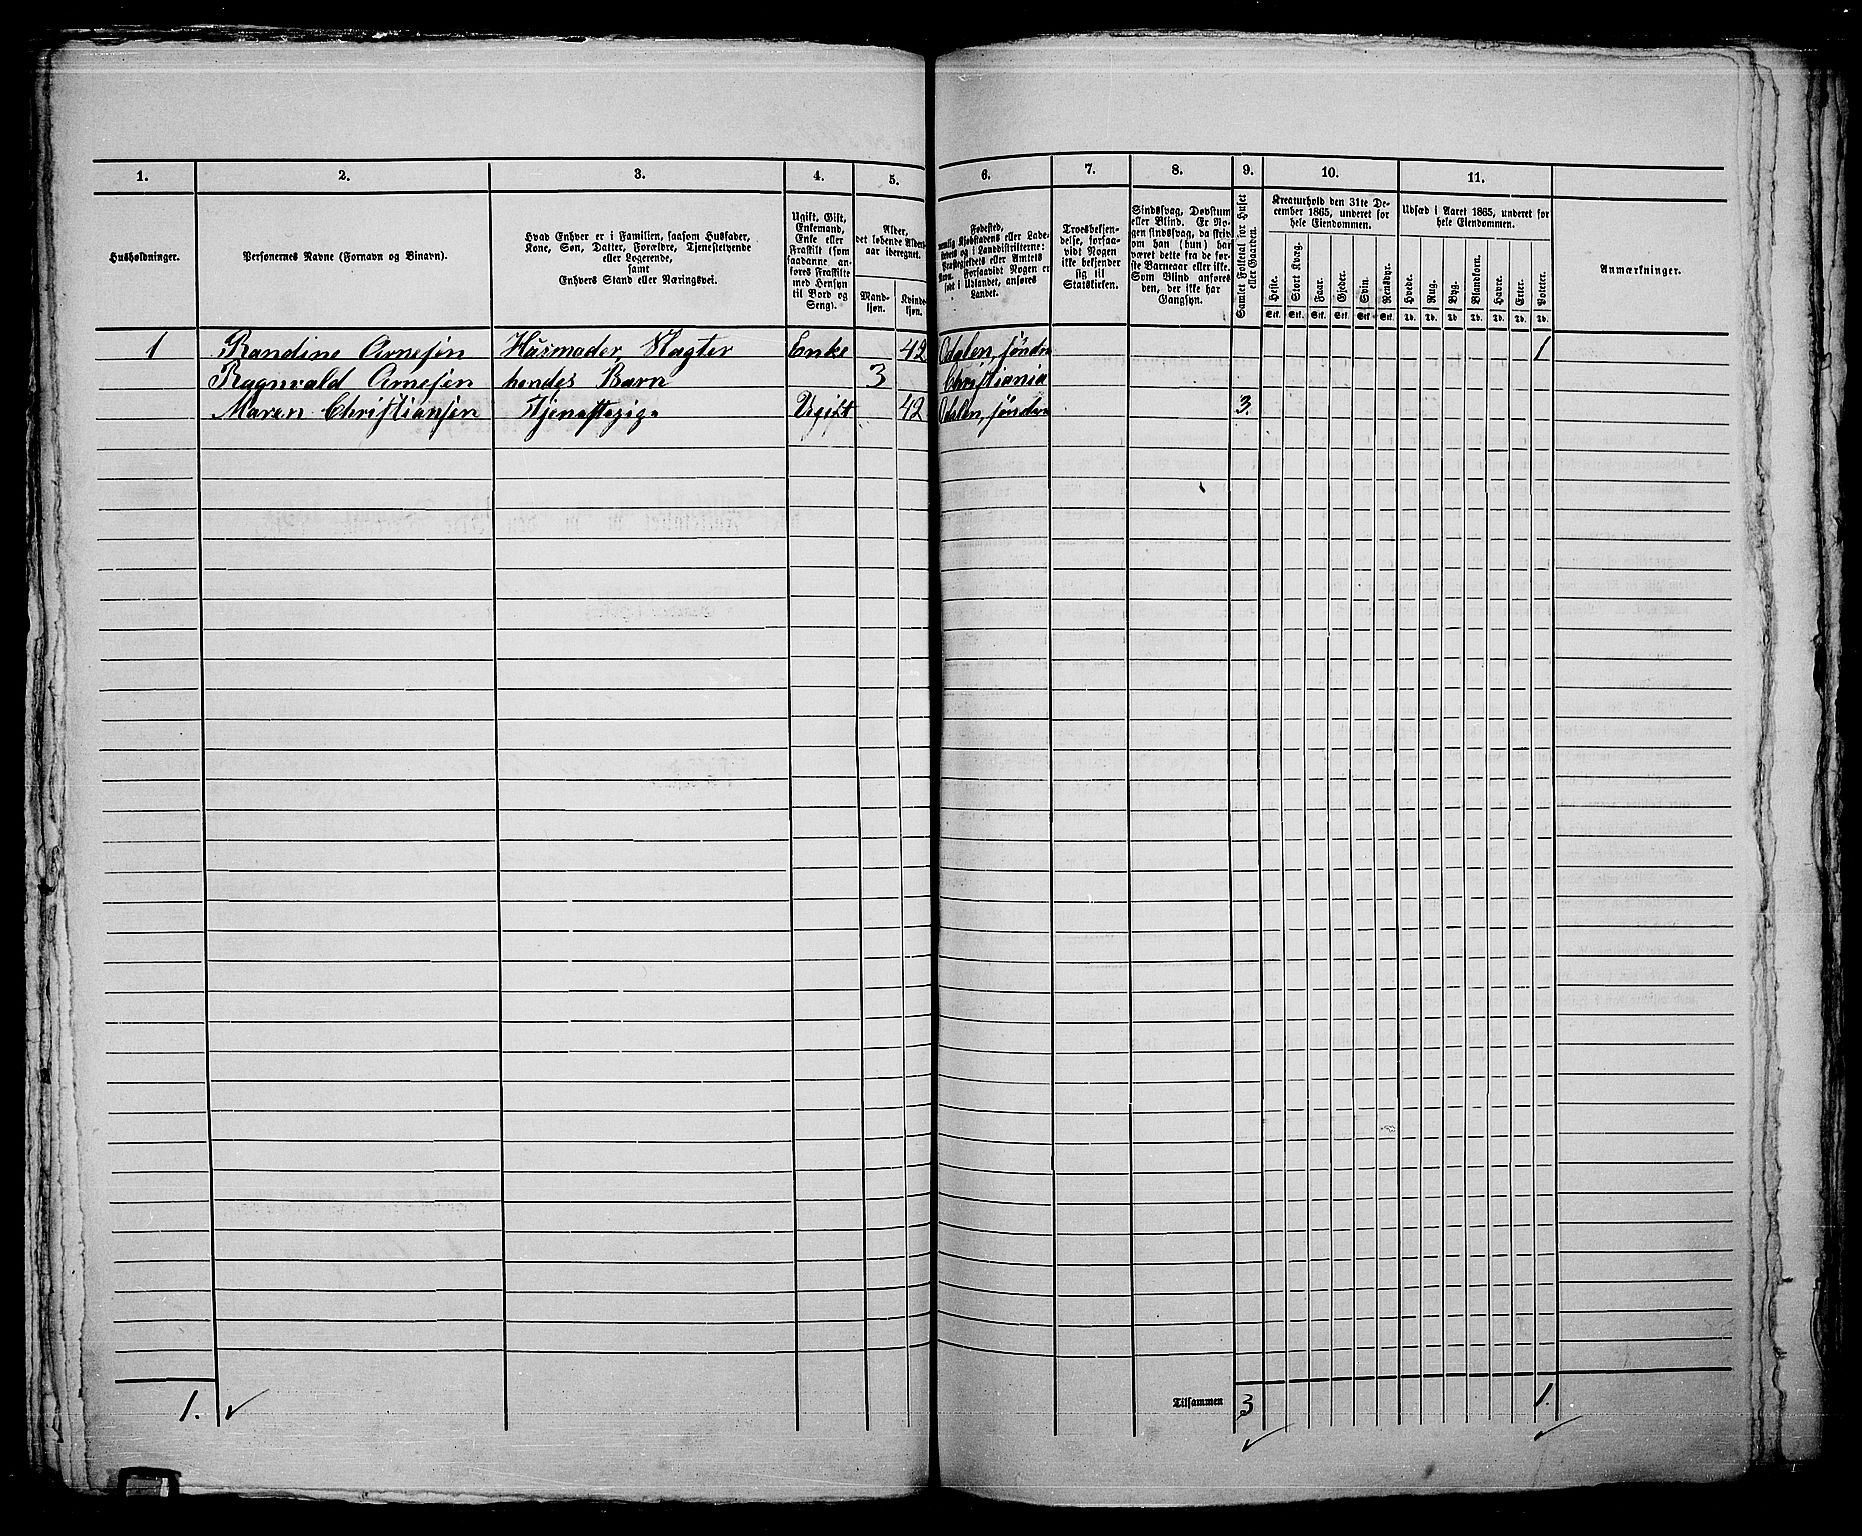 1. 2. 3. 4. 5. 6. 7. 8. 9. 10. 11.
Husholdninger.
Personernes Navne (Fornavn og Binavn).
Hvad Enhver er i Familien, saasom Husfader,
Kone, Søn, Datter, Forældre, Tjenestetyende
eller Logerende,
samt
Enhvers Stand eller Næringsvei.
Ugift, Gift,
Enkemand,
Enke eller
Fraskilt (som
saadanne an-
føres Fraskilte
med Hensyn
til Bord og
Seng).
Alder,
det løbende Alders-
aar iberegnet.
Mand-
kjøn.
Kvinde-
kjøn.
Fødested,
nemlig Kjøbstadens eller Lade-
stedets og i Landdistrikterne:
Præstegjeldets eller Amtets
Navn. Forsaavidt Nogen er
født i Udlandet, anføres
Landet.
Troesbekjen-
delse, forsaa-
vidt Nogen
ikke bekjender
sig til
Statskirken.
Sindssvag, Døvstum
eller Blind. Er No-
gen sindssvag, da skriv
om han (hun) har
været dette fra de før-
ste Barneaar eller ikke.
Som Blind anføres
den, der ikke har
Gangsyn.
Samlet Folketal for Huset
eller Gaarden.
Kreaturhold den 31te De-
cember 1865, underet for
hele Eiendommen.
Heste. Stort Kvæg. Faar. Gjeder. Svin. Rensdyr.
Stk. Stk. Stk. Stk. Stk. Stk.
Udsæd i Aaret 1865, underet for
hele Eiendommen.
Hvede. Rug. Byg. Blandkorn. Havre. Erter. Poteter.
Td. Td. Td. Td. Td. Td. Td.
Anmærkninger.
1 Randine Arnesen Husmoder, Slagter Enke 42 Odalen, søndre 1
Ragnvald Arnesen hendes Barn 3 Christiania
Maren Christiansen Tjenestepige Ugift 42 Odalen, søndre 3.
1. Tilsammen 3 1.